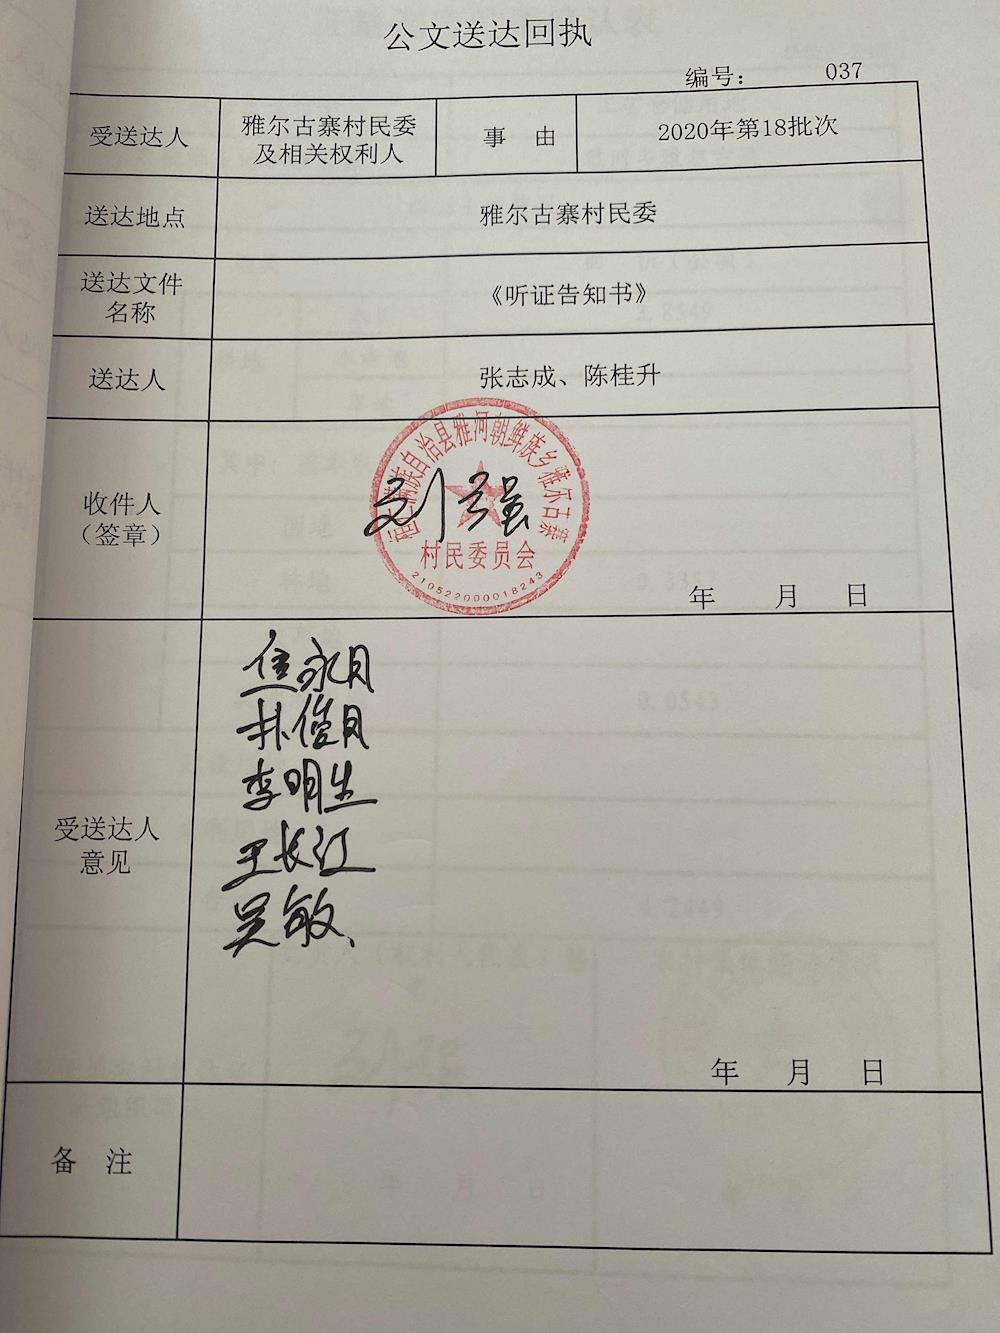 公文送达回执
编号： 037
受送达人
雅尔古寨村民委
及相关权利人
事 由
2020年第18批次
送达地点
雅尔古寨村民委
送达文件
名称
《听证告知书》
送达人
张志成、陈桂升
收件人
（签章）
桓仁满族自治县雅河朝鲜族乡雅尔古寨
村民委员会
2105220000018243
刘强
年 月 日
受送达人
意见
焦永月
朴俊月
李明生
王长江
吴敏、
年 月 日
备 注